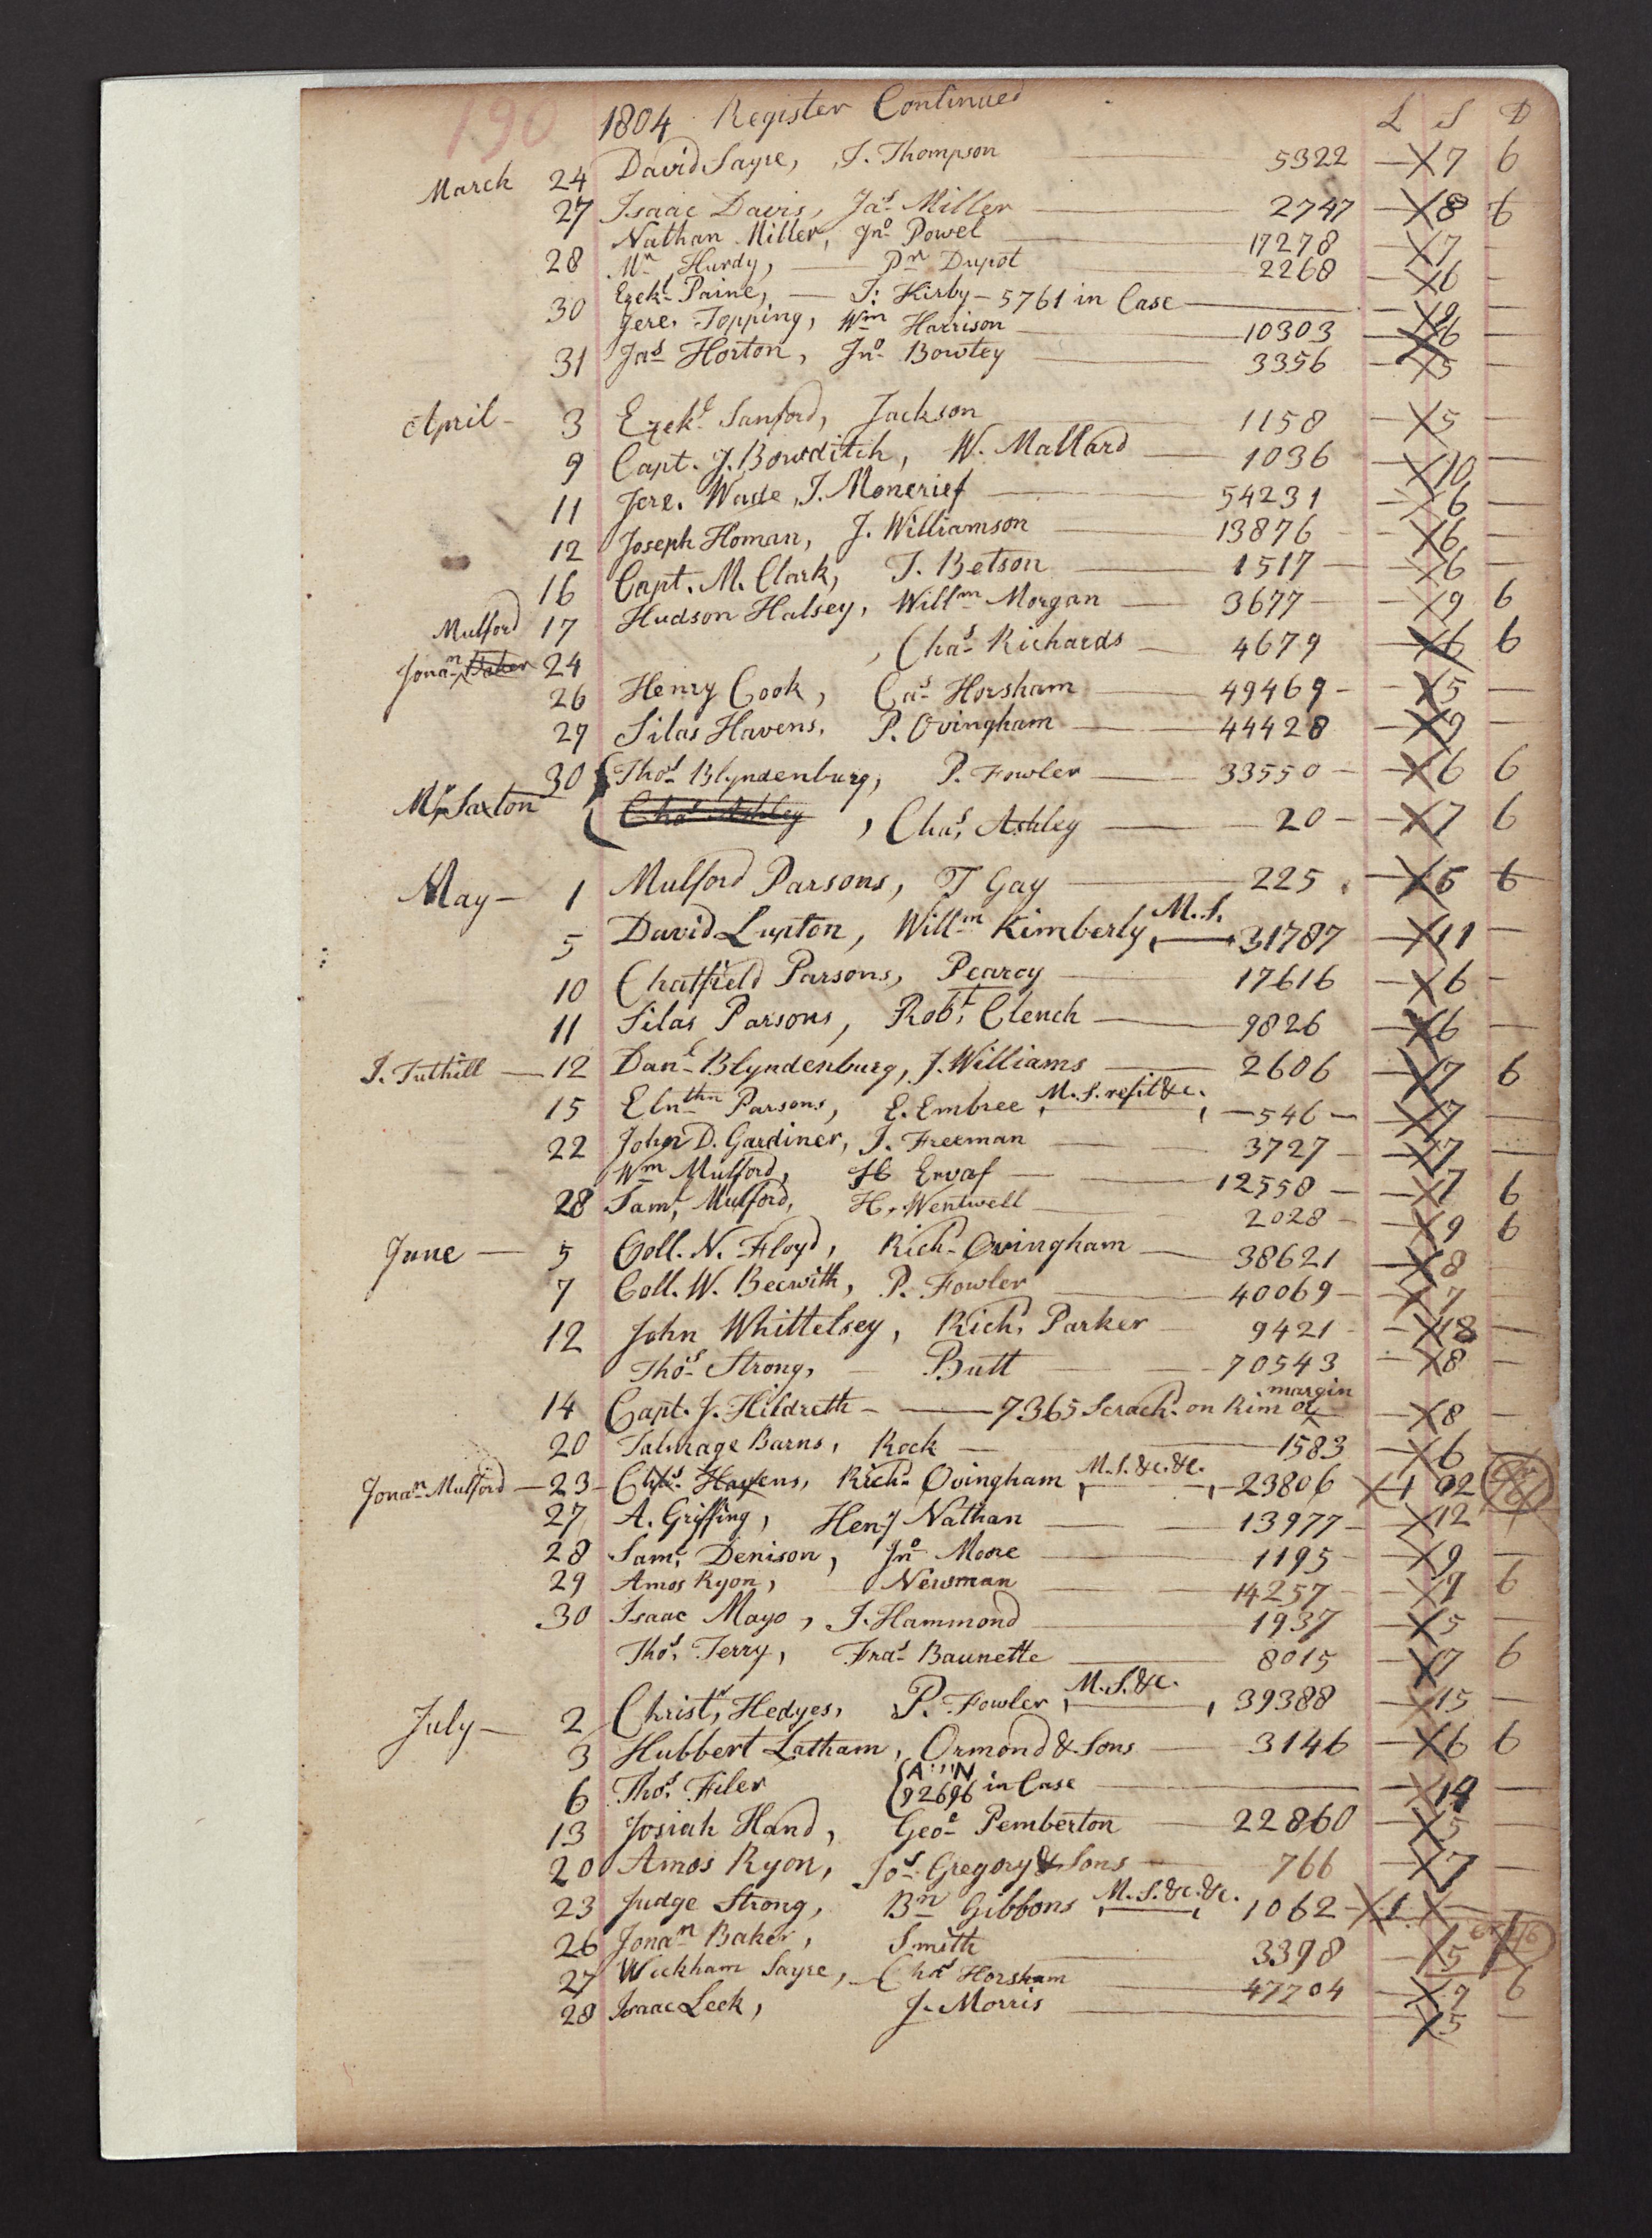 190 1804 Register Continued L S D
March 24 David Sayre, J. Thompson 5322 — 7 6
27 Isaac Davis, Jas Miller 2747 — 8 6
Nathan Miller, Jno Powel 17278 — 7 —
28 Mr Hurdy, — Pr Dupot 2268 — 6 —
Ezekl Paine, — J: Kirby — 5761 in Case — 9 —
30 Jere. Topping, Wm Harrison 10303 — 6 —
31 Jas Horton, Jno Bowtey 3356 — 5 —
April — 3 Ezekl Sanford, Jackson 1158 — 5 —
9 Capt. J. Bowditch, W. Mallard — 1036 — 10 —
11 Jere. Wade, J. Moncrief — 54231 — 6 —
12 Joseph Homan, J. Williamson — 13876 — 6 —
16 Capt. M. Clark, T. Betson — 1517 — 6 —
17 Hudson Halsey, Willm Morgan — 3677 — 9 6
Mulford
Jonan Baker 24 , Chas Richards — 4679 — 6 6
26 Henry Cook, Cas Horsham — 49469 — 5 —
27 Silas Havens, P. Ovingham — 44428 — 9 —
30 Thos Blyndenburg, P. Fowler — 33550 — 6 6
Mr Saxton Chas Ashley , Chas. Ashley — 20 — 7 6
May — 1 Mulford Parsons, T Gay — 225 — 5 6
5 David Lupton, Willm Kimberly, M.S. — 31787 — 11 —
10 Chatfield Parsons, Pearcy — 17616 — 6 —
11 Silas Parsons, Robt. Clench — 9826 — 6 —
J. Tuthill — 12 Danl Blyndenburg, J. Williams — 2606 — 7 6
15 Elnthn Parsons, E. Embree, M.S. refit &c. — 546 — 7 —
22 John D. Gardiner, J. Freeman — 3727 — 7 —
Wm Mulford, — 12558 — 7 6
28 Saml. Mulford, H. Wentwell — 2028 — 9 6
June — 5 Coll. N. Floyd, Richd Ovingham — 38621 — 8
7 Coll. W. Becwith, P. Fowler — 40069 — 7 —
12 John Whittelsey, Richd. Parker — 9421 — 18 —
Thos Strong, — Butt — 70543 — 8 —
14 Capt. J. Hildreth — 7365 Scrach. on Rim or margin — 8 —
20 Talmage Barns, Rock — 1583 — 6 —
Jonan Mulford — 23 Chs. Havens, Richd Ovingham, M.S. &c. &c. — 23806 1 92
27 A. Griffing, Heny Nathan — 13977 — 12
28 Saml. Denison, Jno Moore — 1195 — 9 —
29 Amos Ryon, Newman — 14257 — 9 6
30 Isaac Mayo, J. Hammond — 1937 — 5 —
Thos. Terry, Fras Baunette — 8015 — 7 6
July — 2 Christr. Hedges, P. Fowler, M.S. &c. — 39388 — 15 —
3 Hubbert Latham, Ormond & Sons — 3146 — 6 6
6 Thos. Filer A'''N 92696 in Case — 14 —
13 Josiah Hand, Geoe Pemberton — 22860 — 5 —
20 Amos Ryon, Jos Gregory & Sons — 766 — 7 —
23 Judge Strong, Bn Gibbons, M.S. &c. &c. 1062 — 1
26 Jonan Baker, Smith — 3398 — 5
27 Wickham Sayre, Chas Horsham — 47704 — 9 6
28 Isaac Leek, J. Morris — 5 —